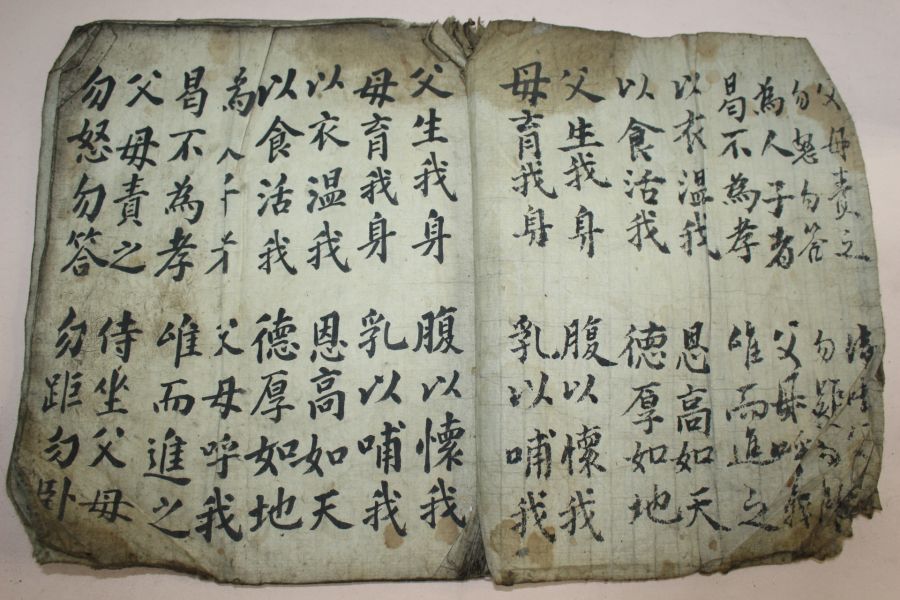 父母責之
勿怒勿答 勿
為人子者 父母呼我
曷不為孝 唯而進之
以衣溫我 恩高如天
以食活我 德厚如地
父生我身 腹以懷我
母育我身 乳以哺我
父生我身 腹以懷我
母育我身 乳以哺我
以衣溫我 恩高如天
以食活我 德厚如地
為人子 父母呼我
曷不為孝 唯而進之
父母責之 侍坐父母
勿怒勿答 勿距勿卧